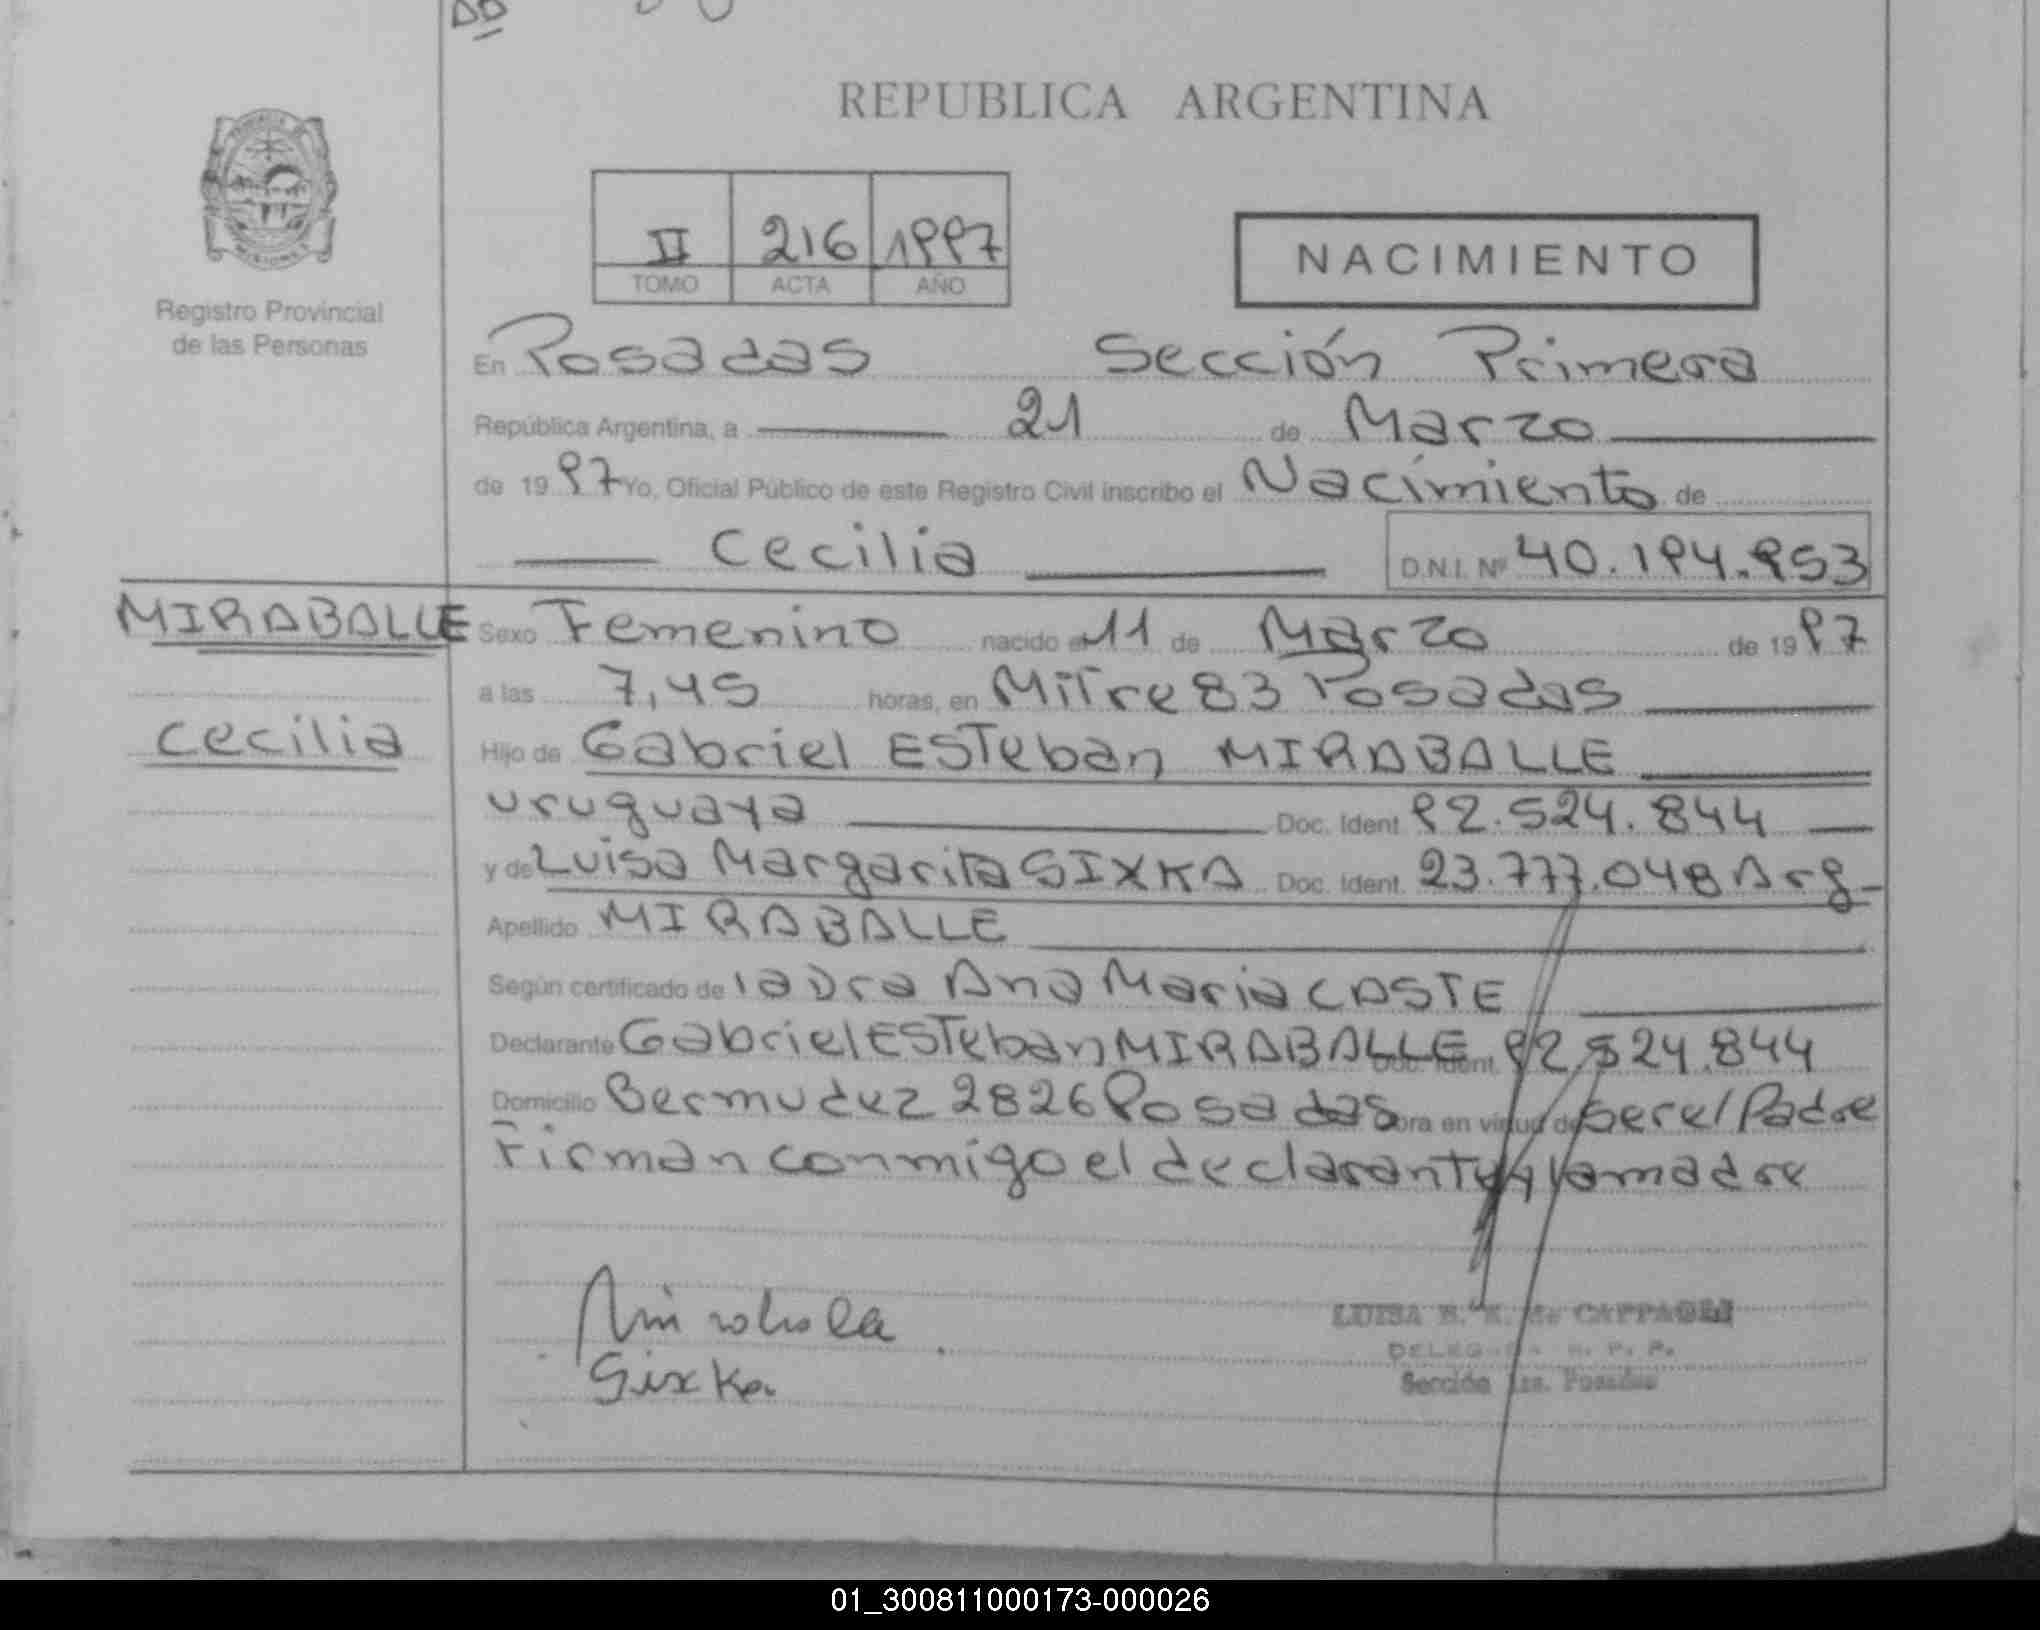 REPUBLICA ARGENTINA
II 216 1997
TOMO ACTA AÑO
NACIMIENTO
Registro Provincial
de las Personas
En Posadas Sección Primera
República Argentina, a 21 de Marzo
de 1997 Yo, Oficial Público de este Registro Civil inscribo el Nacimiento de
Cecilia D.N.I. Nº 40.194.953
MIRABALLE
Cecilia
Sexo Femenino nacido el 11 de Marzo de 1997
a las 7,45 horas, en Mitre 83 Posadas
Hijo de Gabriel Esteban MIRABALLE
uruguaya Doc. Ident 92.524.844
y de Luisa Margarita SIXKA Doc. Ident. 23.777.048 Arg
Apellido MIRABALLE
Según certificado de la Dra Ana Maria CASTE
Declarante Gabriel Esteban MIRABALLE Doc. Ident. 92.524.844
Domicilio Bermudez 2826 Posadas obra en virtud de ser el Padre
Firman conmigo el declarante y la madre
Sixka
LUISA B. K. de
Sección 1ra. Posadas
01_300811000173-000026